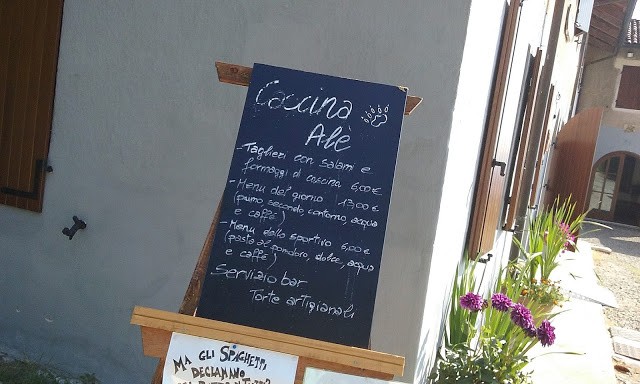 Cascina
Alè
- Taglieri con salami e
formaggi di cascina 6,00€
- Menu del giorno 13,00€
(primo, secondo, contorno, acqua
e caffè)
- Menu dello sportivo 6,00€
(pasta al pomodoro, dolce, acqua
e caffè)
Servizio bar
Torte artigianali
MA GLI SPAGHETTI,
DECLAMANO